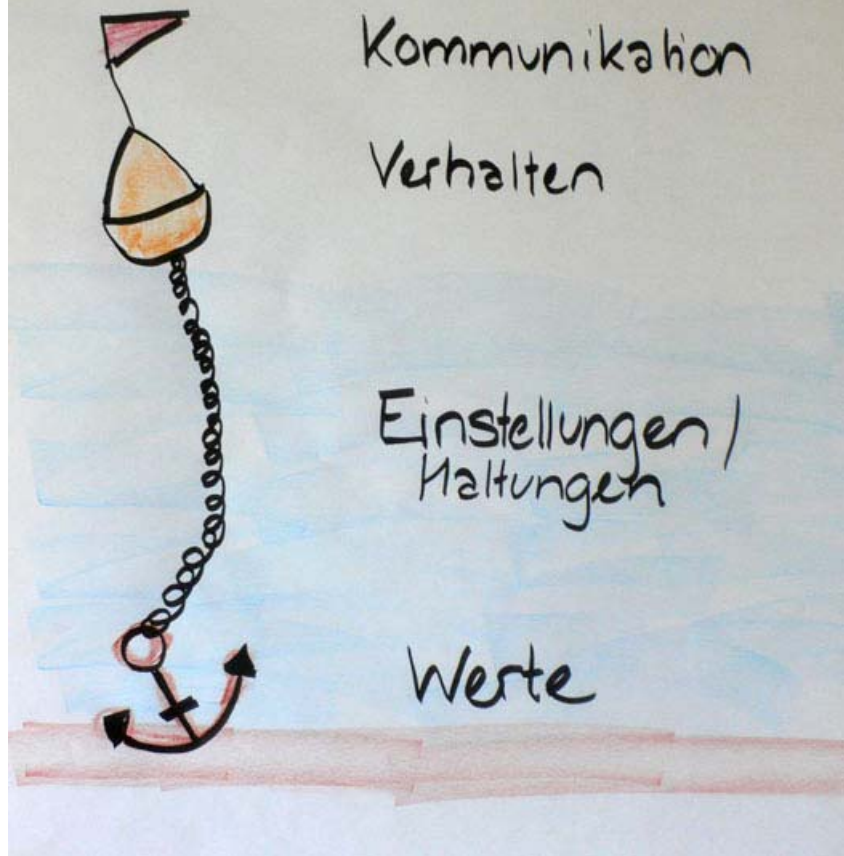 Kommunikation
Verhalten
Einstellungen /
Haltungen
Werte